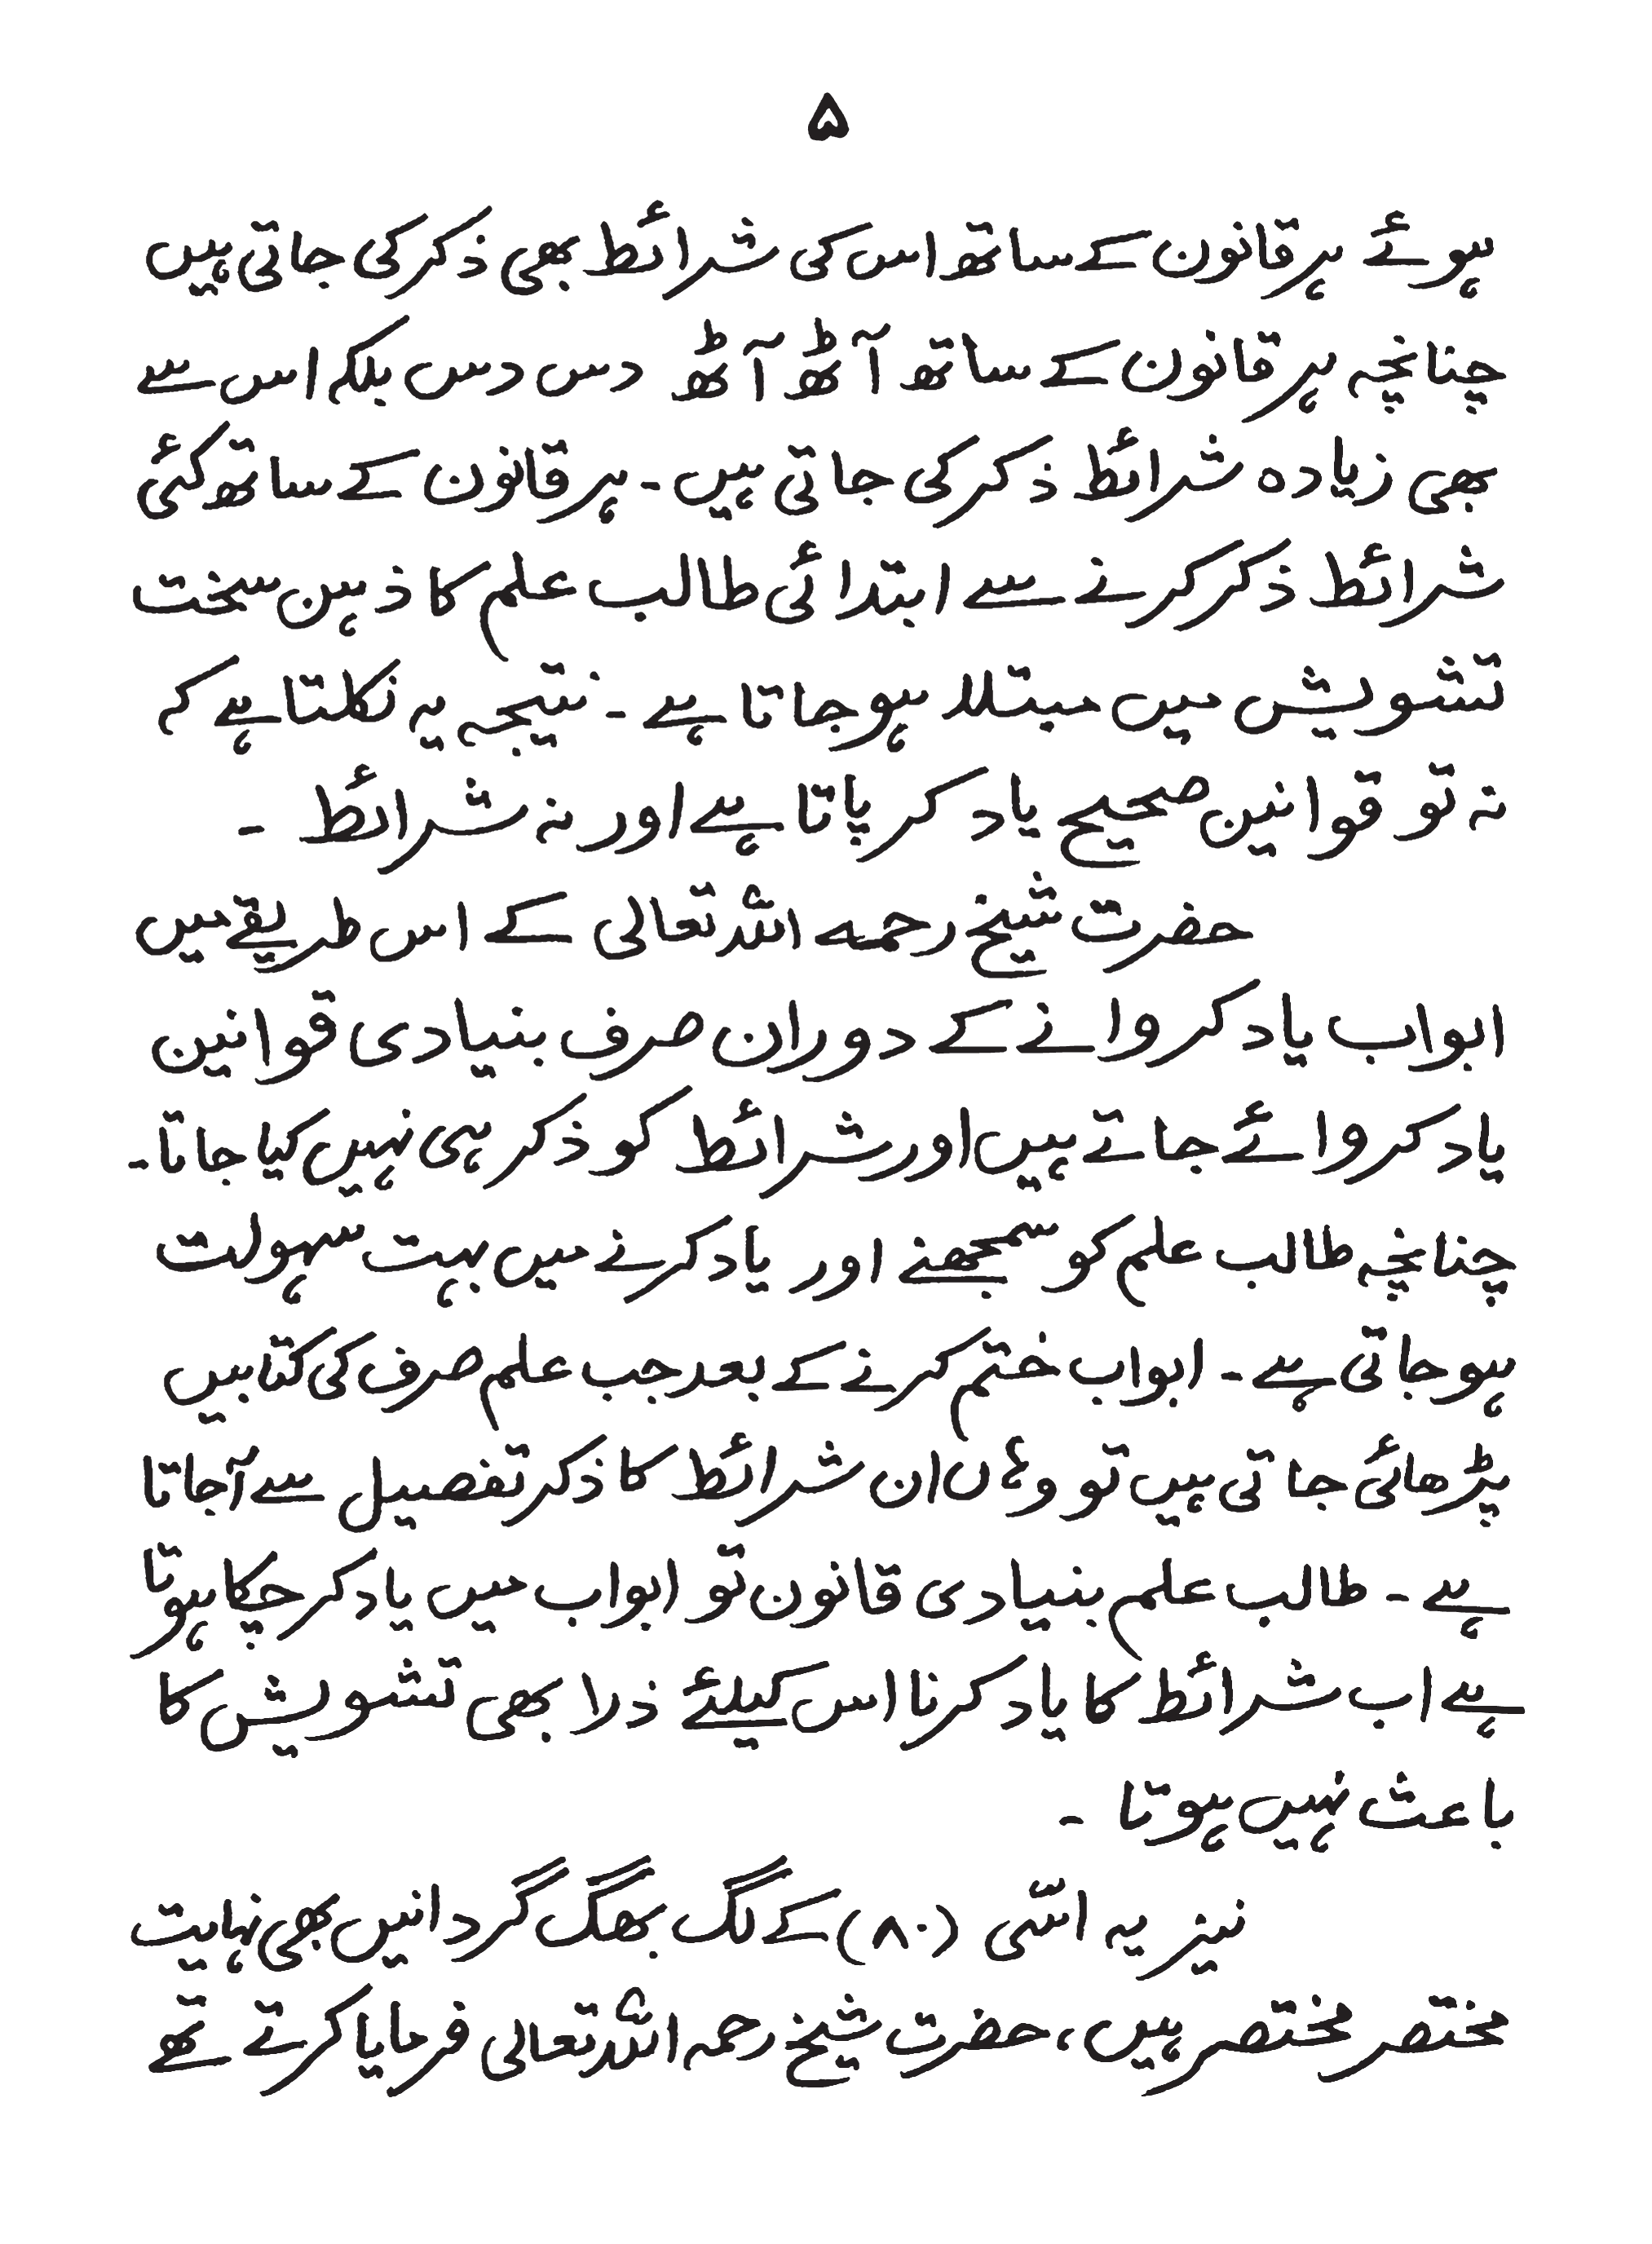 ۵
ہوئے ہر قانون کے ساتھ اس کی شرائط بھی ذکر کی جاتی ہیں
چنانچہ ہر قانون کے ساتھ آٹھ آٹھ دس دس بلکہ اس سے
بھی زیادہ شرائط ذکر کی جاتی ہیں ۔ ہر قانون کے ساتھ کئی
شرائط ذکر کرنے سے ابتدائی طالب علم کا ذہن سخت
تشویش میں مبتلا ہو جاتا ہے ۔ نتیجہ یہ نکلتا ہے کہ
نہ تو قوانین صحیح یاد کر پاتا ہے اور نہ شرائط ۔
حضرت شیخ رحمہ اللہ تعالی کے اس طریقے میں
ابواب یاد کروانے کے دوران صرف بنیادی قوانین
یاد کروائے جاتے ہیں اور شرائط کو ذکر ہی نہیں کیا جاتا ۔
چنانچہ طالب علم کو سمجھنے اور یاد کرنے میں بہت سہولت
ہو جاتی ہے ۔ ابواب ختم کرنے کے بعد جب علم صرف کی کتابیں
پڑھائی جاتی ہیں تو وہاں ان شرائط کا ذکر تفصیل سے آجاتا
ہے ۔ طالب علم بنیادی قانون تو ابواب میں یاد کر چکا ہوتا
ہے اب شرائط کا یاد کرنا اس کیلئے ذرا بھی تشویش کا
باعث نہیں ہوتا ۔
نیز یہ اسّی (۸۰) کے لگ بھگ گردانیں بھی نہایت
مختصر مختصر ہیں ، حضرت شیخ رحمہ اللہ تعالی فرمایا کرتے تھے